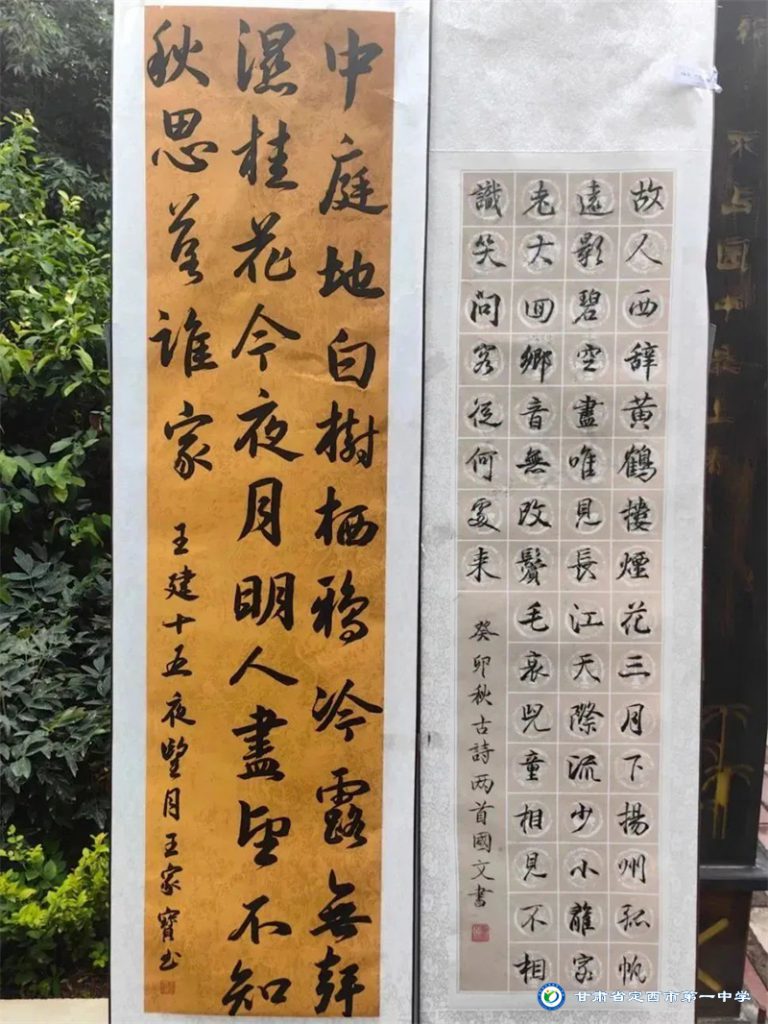 中庭地白樹栖鴉冷露無聲
濕桂花今夜月明人盡望不知
秋思落誰家
王建十五夜望月王家寶書
故人西辞黄鶴樓煙花三月下揚州孤帆
遠影碧空盡唯見長江天際流少小離家
老大回鄉音無改鬢毛衰兒童相見不相
識笑問客從何處来
癸卯秋古詩两首國文書
不占园中最上
甘肃省定西市第一中学